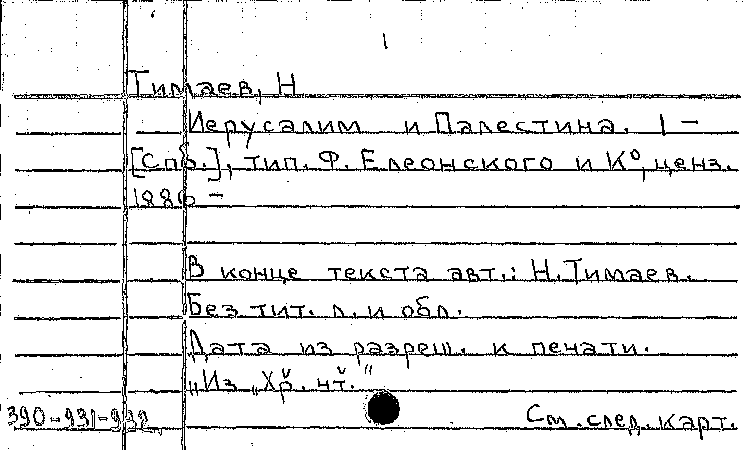 1
Тимаев, Н
Иерусалим и Палестина. 1 –
[Спб.], тип. Ф. Елеонского и К⁰, ценз.
1886 –
В конце текста авт.: Н. Тимаев.
Без тит. л. и обл.
Дата из разреш. к печати.
„Из „Хр. чт."
390-931-932
См. след. карт.